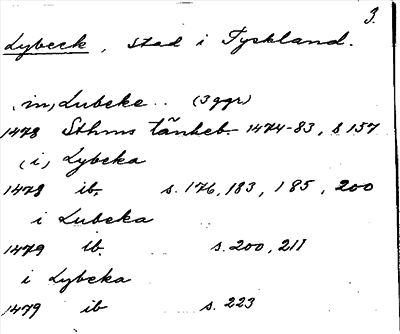 3.
Lybeck, stad i Tyskland.
(in) Lubeke.. (3 ggr)
1478 Sthms tänkeb. 1474-83, s. 157
(i) Lybeka
1478 ib. s. 176, 183, 185, 200
i Lubeka
1479 ib. s. 200, 211
i Lybeka
1479 ib s. 223